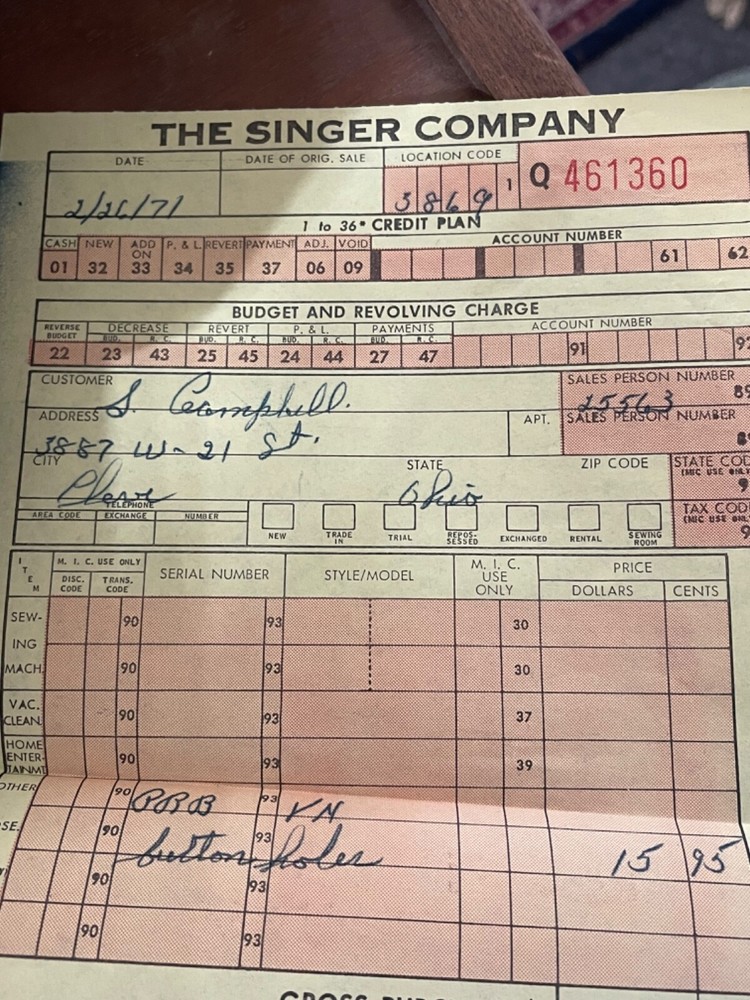 THE SINGER COMPANY
DATE DATE OF ORIG. SALE LOCATION CODE
2/26/71 3869 1 Q 461360
1 to 36* CREDIT PLAN
CASH NEW ADD ON P. & L. REVERT PAYMENT ADJ. VOID ACCOUNT NUMBER
01 32 33 34 35 37 06 09 61 62
BUDGET AND REVOLVING CHARGE
REVERSE BUDGET DECREASE REVERT P. & L. PAYMENTS ACCOUNT NUMBER
BUD. R. C. BUD. R. C. BUD. R. C. BUD. R. C.
22 23 43 25 45 24 44 27 47 91
CUSTOMER S. Campbell. SALES PERSON NUMBER
25563
ADDRESS APT. SALES PERSON NUMBER
3887 W-21 St.
CITY STATE ZIP CODE STATE COD
(MIC USE ONLY
Cleve Ohio
TELEPHONE
AREA CODE EXCHANGE NUMBER TAX COD
(MIC USE ONLY
NEW TRADE IN TRIAL REPOS-SESSED EXCHANGED RENTAL SEWING ROOM
ITEM M. I. C. USE ONLY SERIAL NUMBER STYLE/MODEL M. I. C. USE ONLY PRICE
DISC. CODE TRANS. CODE DOLLARS CENTS
SEW- 90 93 30
ING
MACH. 90 93 30
VAC. CLEAN. 90 93 37
HOME ENTER-TAINMT 90 93 39
OTHER 90 93
90 93
button holer 15 95
90 93
90 93